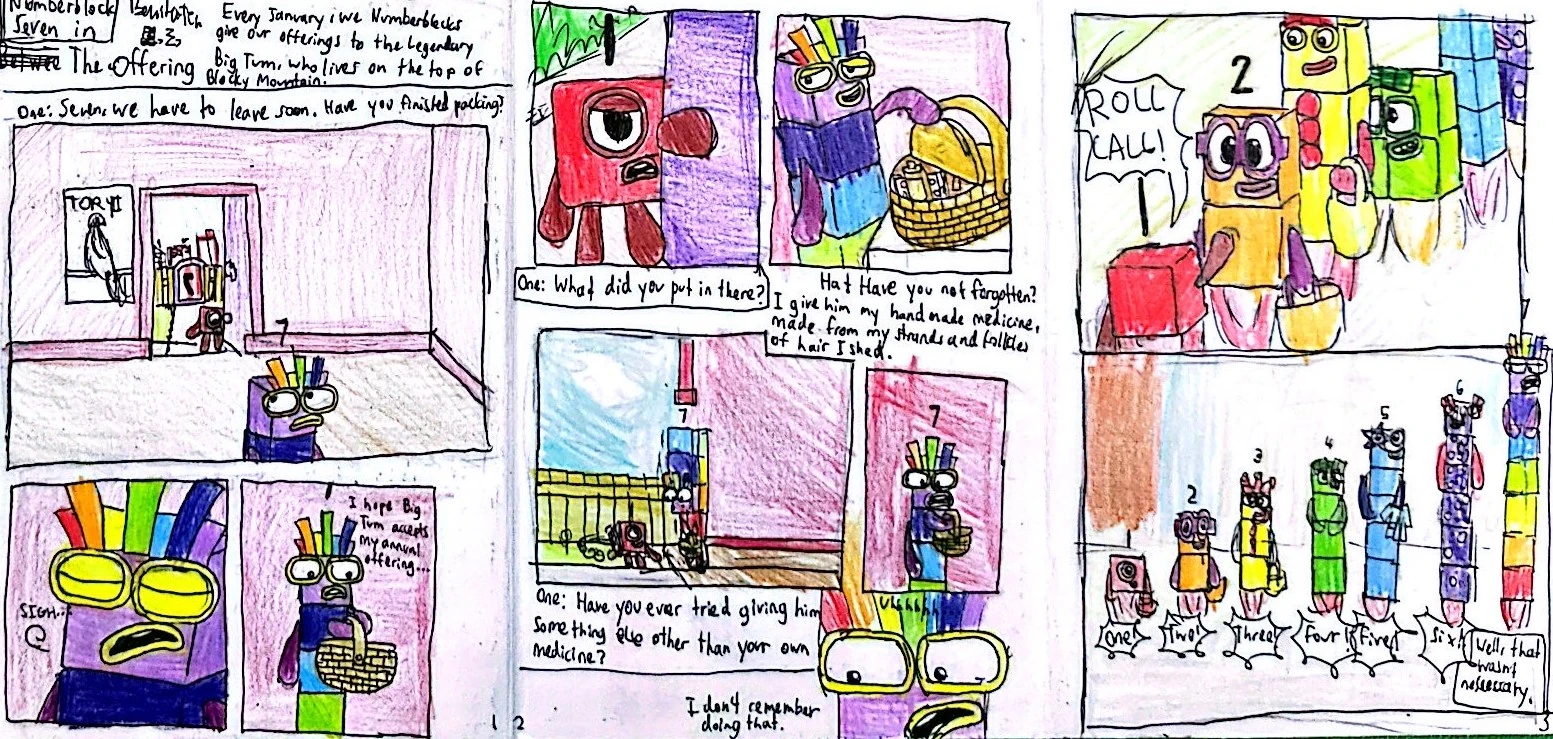 Numberblock
Seven in
The Offering
Every January, we Numberblocks
give our offerings to the Legendary
Big Tum, who lives on the top of
Blocky Mountain.
One: Seven, we have to leave soon. Have you finished packing?
TORY
7
SIGH...
I hope Big
Tum accepts
my annual
offering...
1
One: What did you put in there?
Hat Have you not forgotten?
I give him my handmade medicine,
made from my strands and follicles
of hair I shed.
7
7
One: Have you ever tried giving him
something else other than your own
medicine?
Uhhhhhh
I don't remember
doing that.
2
ROLL
CALL!
2
2
3
4
5
6
7
One!
Two!
Three!
Four!
Five!
Six!
Well, that
wasn't
nesessary.
3